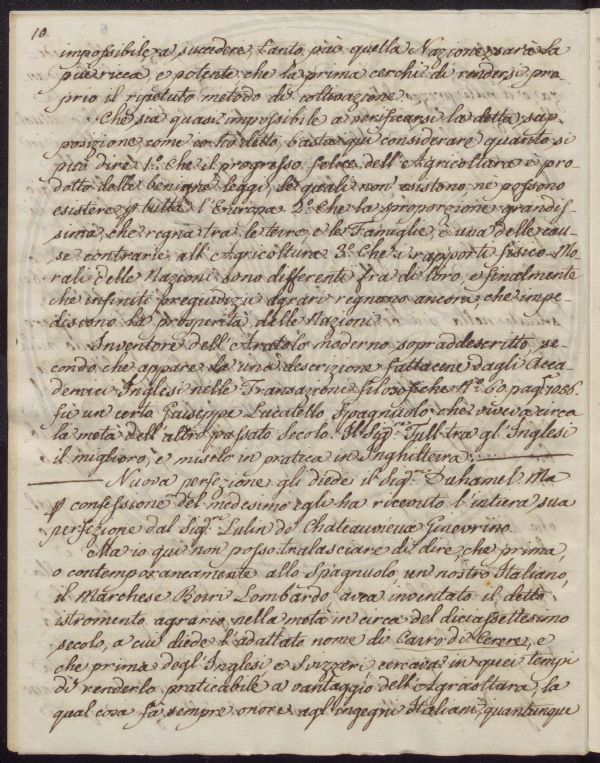 10.
impossibile a succedere, tanto più quella Nazione sarà la
più ricca, e potente che la prima cerchi di rendersi pro-
prio il ripetuto metodo di coltivazione.
Che sia quasi impossibile a verificarsi la detta sup-
posizione come ho detto, basta qui considerare quanto si
può dire 1.° Che il progresso felice dell'Agricoltura è pro-
dotto delle benigne leggi, le quali non esistono, nè possono
esistere p tutta l'Europa 2.° Che la sproporzione grandis-
sima, che regna tra le terre, e le Famiglie, è una delle cau-
se contrarie all'Agricoltura 3.° Che i rapporti fisico-Mo-
rali delle Nazioni sono differenti fra di loro, e finalmente
che infiniti pregiudizj agrari regnano ancora, che impe-
discono la prosperità delle Nazioni.
Inventore dell'Aratolo moderno sopraddescritto, se-
condo che appare da una descrizione fattacene dagli Acca-
demici Inglesi nelle Transazioni filosofiche N.° 60. pag. 1056.
fu un certo Giuseppe Lucatello Spagnuolo che viveva circa
la metà dell'altro passato Secolo. Il Sig.re Tull tra gl'Inglesi
il migliorò, e miselo in pratica in Inghilterra.
Nuova perfezione gli diede il Sig.re Duhamel Ma
p confessione del medesimo egli ha ricevuto l'intiera sua
perfezione dal Sig.re Lulin de Chateauvieux Ginevrino.
Ma io qui non posso tralasciare di dire, che prima,
o contemporaneamente allo Spagnuolo, un nostro Italiano,
il Marchese Boiri Lombardo avea inventato il detto
istromento agrario, nella metà in circa del diciassettesimo
secolo, a cui diede l'adattato nome di Carro di Cerere, e
che prima degl'Inglesi e Svizzeri cercava in quei tempi
di renderlo praticabile a vantaggio dell'Agricoltura, la
qual cosa fà sempre onore agl'ingegni Italiani, quantunque